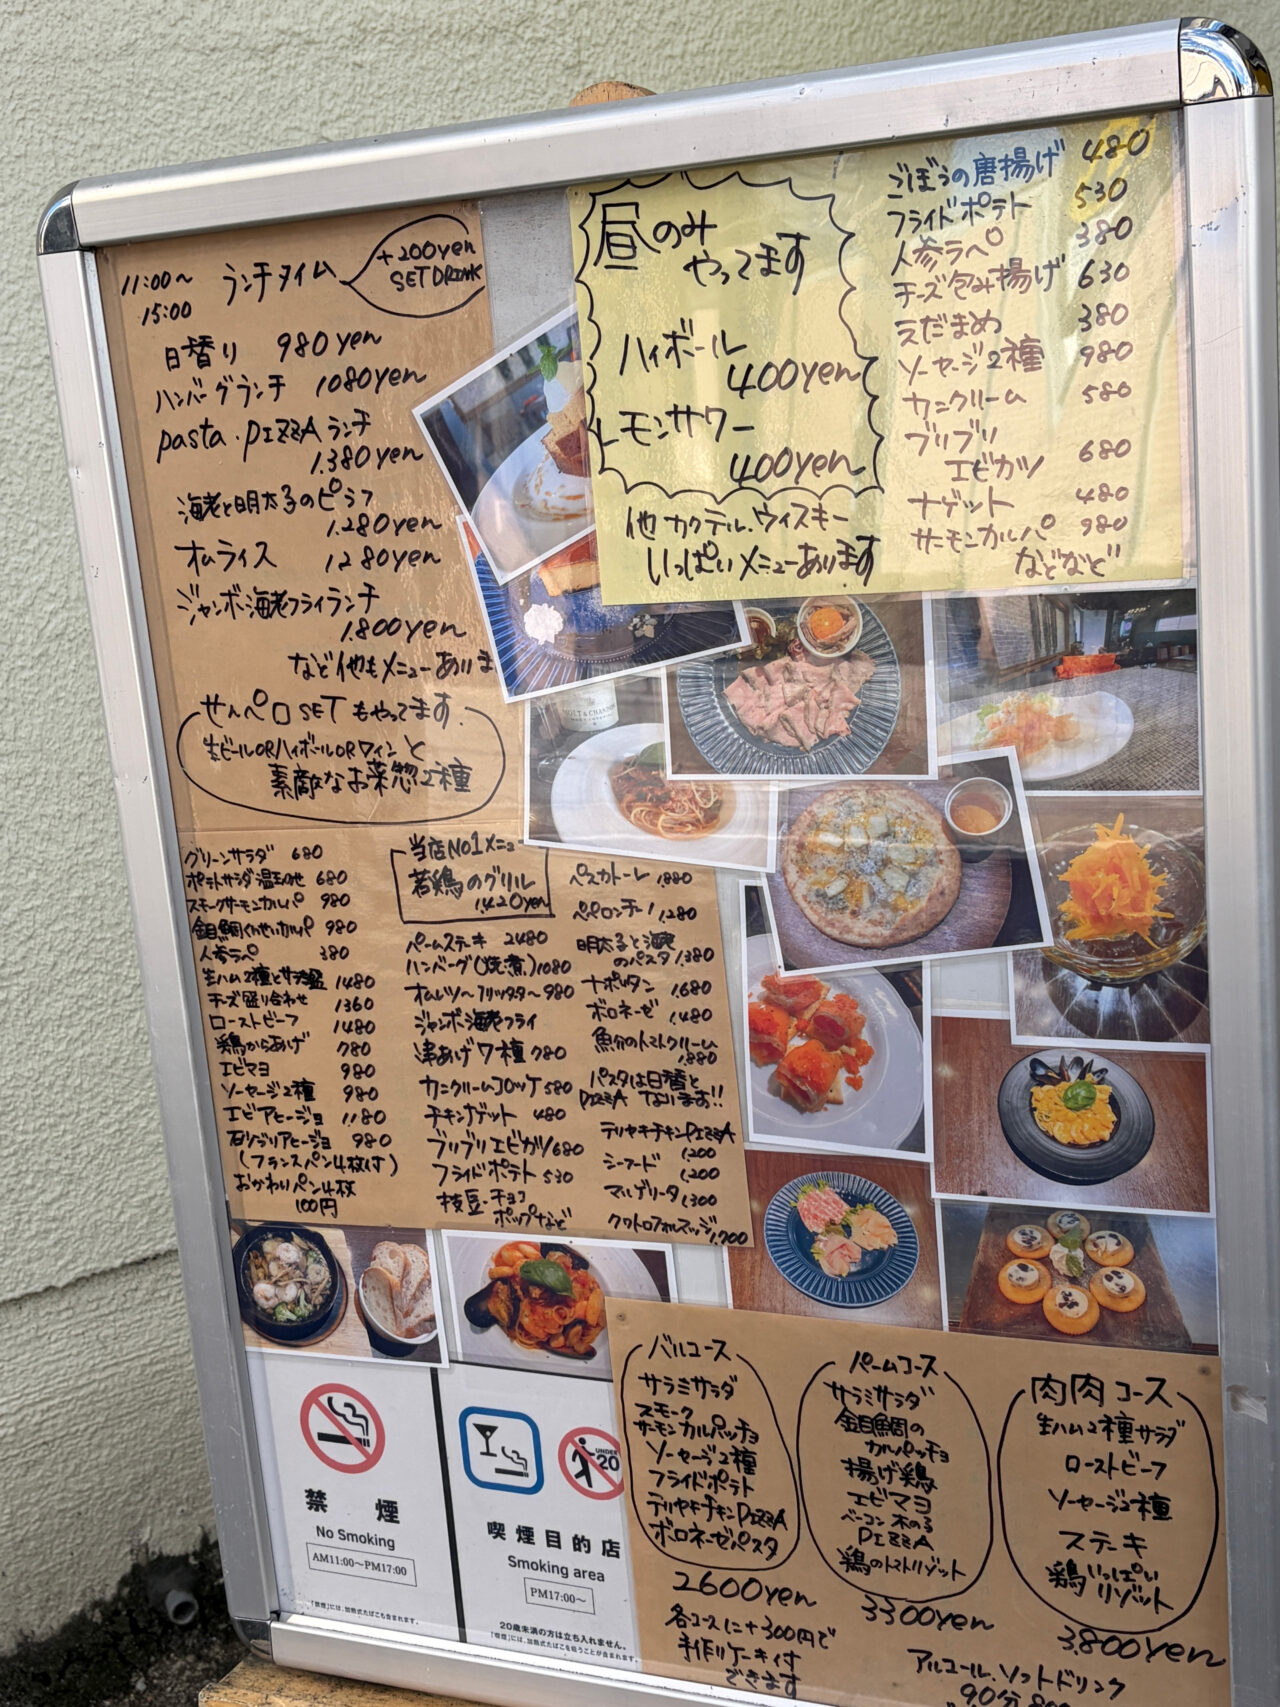 11:00～
15:00
ランチタイム
+200yen
SET DRINK
日替り 980yen
ハンバーグランチ 1080yen
pasta・PIZZAランチ
1.380yen
海老と明太子のピラフ
1.280yen
オムライス 1280yen
ジャンボ海老フライランチ
1.800yen
など他もメニューありま
せんべロSETもやってます。
生ビールORハイボールORワインと
素敵なお菜惣2種
昼のみ
やってます
ハイボール
400yen
モンサワー
400yen
他カクテル、ウィスキー
いっぱいメニューあります
ごぼうの唐揚げ 480
フライドポテト 530
人参ラペ 380
チーズ包み揚げ 630
えだまめ 380
ソーセージ2種 980
カニクリーム 580
ブリブリ
エビカツ 680
ナゲット 480
サーモンカルパ 980
などなど
グリーンサラダ 680
ポテトサラダ温玉のせ 680
スモークサーモンカルパ 980
金目鯛くんせいカルパ 980
人参ラペ 380
生ハム2種とサラミ盛 1480
チーズ盛り合わせ 1360
ローストビーフ 1480
鶏からあげ 780
エビマヨ 980
ソーセージ2種 980
エビアヒージョ 1180
石ヅリアヒージョ 980
(フランスパン4枚付)
おかわりパン4枚
100円
当店No1メニュー
若鶏のグリル
1.420yen
パームステーキ 2480
ハンバーグ(焼・煮) 1080
オムレツ～フリッタタ～ 980
ジャンボ海老フライ
串あげ7種 780
カニクリームコロッケ 580
チキンナゲット 480
ブリブリエビカツ 680
フライドポテト 530
枝豆・チョコ
ポップなど
ペスカトーレ 1,880
ペペロンチーノ 1,280
明太子と海老
のパスタ 1,380
ナポリタン 1,680
ボロネーゼ 1,480
魚介のトマトクリーム
1,880
パスタは日替と
PIZZA なります!!
テリヤキチキンPIZZA
1,200
シーフード 1,200
マルゲリータ 1,300
クワトロフォルマッジ 1,700
MOËT & CHANDON
禁煙
No Smoking
AM11:00～PM17:00
「禁煙」には、加熱式たばこも含まれます。
UNDER
20
喫煙目的店
Smoking area
PM17:00～
20歳未満の方は立ち入れません。
「喫煙」には、加熱式たばこを吸うことが含まれます。
バルコース
サラミサラダ
スモーク
サーモンカルパッチョ
ソーセージ2種
フライドポテト
テリヤキチキンPIZZA
ボロネーゼパスタ
2600yen
各コースに+300円で
手作りケーキ付
できます
パームコース
サラミサラダ
金目鯛の
カルパッチョ
揚げ鶏
エビマヨ
ベーコンきのこ
PIZZA
鶏のトマトリゾット
3300yen
肉肉コース
生ハム2種サラダ
ローストビーフ
ソーセージ2種
ステーキ
鶏いっぱい
リゾット
3.800yen
アルコール、ソフトドリンク
90分